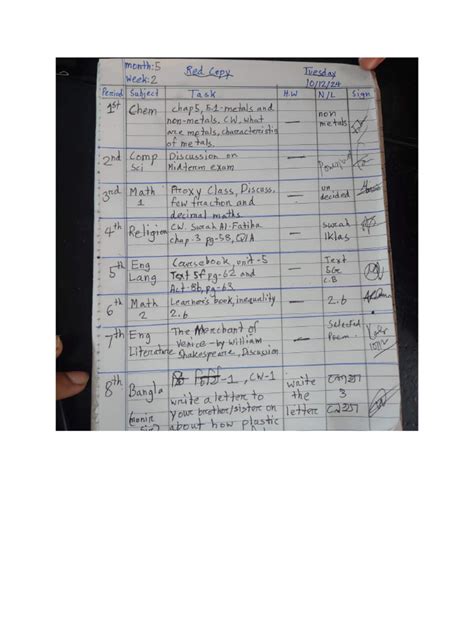 month:5
Week:2
Red Copy
Tuesday
10/12/24
Period Subject Task H.W N/L Sign
1st Chem chap5, 5.1-metals and non metals
non-metals, CW, what
are metals, characteristics
of metals.
2nd Comp Sci Discussion on
Midterm exam
3rd Math 1 Proxy Class, Discuss, un decided
few fraction and
decimal maths
4th Religion CW. Surah Al-Fatiha surah Iklas
chap-3 pg-58, Q/A
5th Eng Lang Coursebook, unit-5 Text
Text 5f pg-62 and 5G
Act-8b, pg-63 C.B
6th Math 2 Learner's book, inequality 2.b
2.b
7th Eng Literature The Merchant of Selected Poem
Venice-by William
Shakespeare, Discussion
8th Bangla -1, CW-1 write the letter
write a letter to 3
your brother/sister on
about how plastic